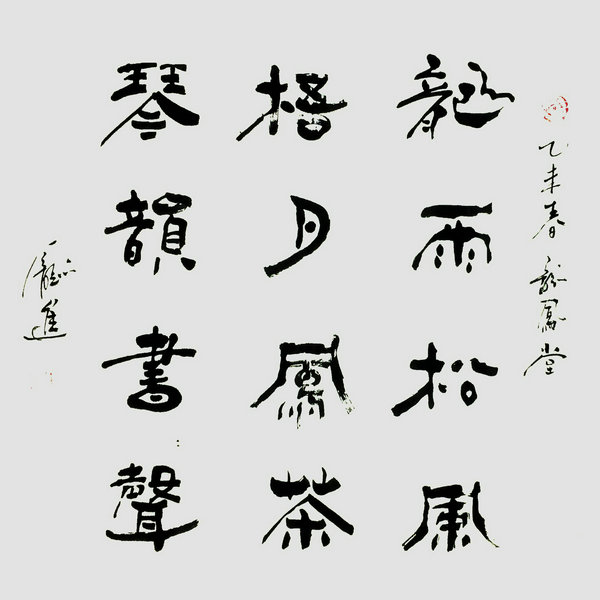 乙未春 龍鳳堂
龍雨松風
梧月鳳茶
琴韻書聲
龐進